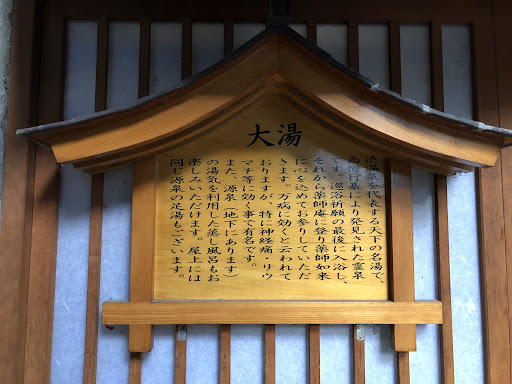 大湯
渋温泉を代表する天下の名湯で
高僧行基により発見された霊泉
です。巡浴祈願の最後に入浴し、
それから薬師庵に登り薬師如来
に心を込めてお参りしていただ
きます。万病に効くと云われて
おりますが、特に神経痛・リウ
マチ等に効く事で有名です。
また、源泉(地下にあります)
の湯気を利用した蒸し風呂もお
楽しみいただけます。屋上には
同じ源泉の足湯もございます。